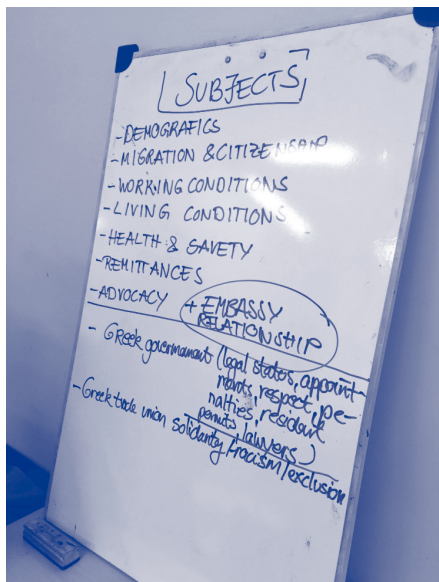 SUBJECTS
- DEMOGRAFICS
- MIGRATION & CITIZENSHIP
- WORKING CONDITIONS
- LIVING CONDITIONS
- HEALTH & SAVETY
- REMITTANCES
- ADVOCACY + EMBASSY
RELATIONSHIP
- Greek governmant (legal status, appoint-
mants, respect, pe-
nalties, residant
permits, lawyers)
- Greek trade union solidarity/racism/exclusion